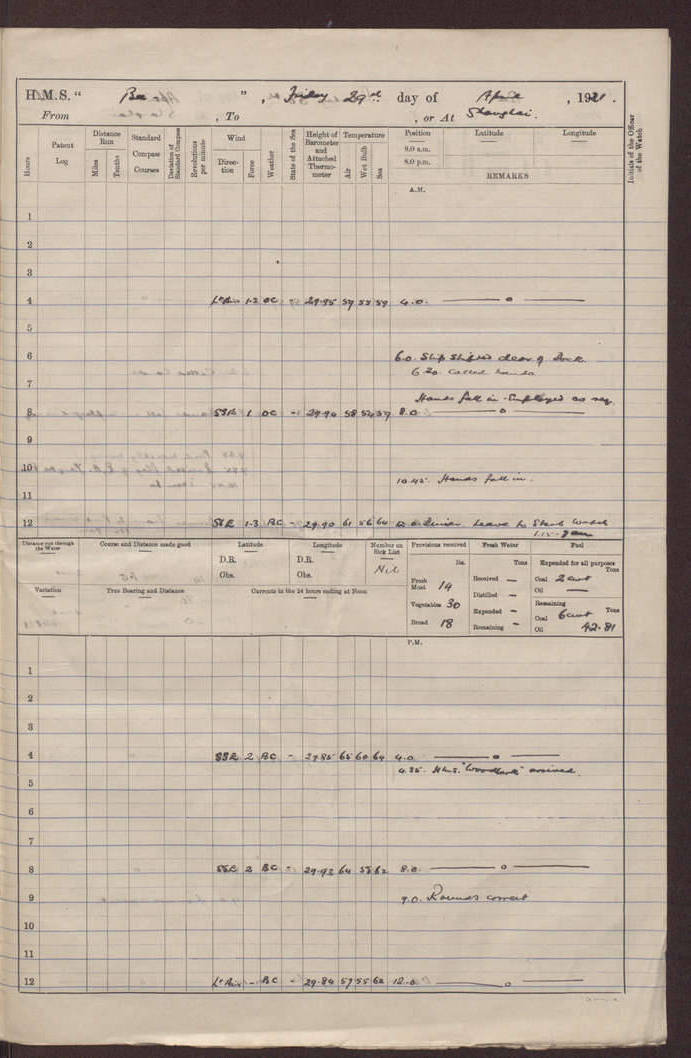 H.M.S. "Bee", Friday 29th day of April, 1921.
From , To , or At Shanghai.
Hours
Patent Log
Distance Run
Miles
Tenths
Standard Compass Courses
Deviation of Standard Compass
Revolutions per minute
Wind
Direction
Force
Weather
State of the Sea
Height of Barometer and Attached Thermometer
Temperature
Air
Wet Bulb
Sea
Position
Latitude
Longitude
8.0 a.m.
8.0 p.m.
REMARKS
Initials of the Officer of the Watch
A.M.
1
2
3
4 Lt Airs 1-2 OC 29.95 59 55 59 4.0. — o —
5
6 6.0. Ship shifted clear of Dock.
6.30 Called hands
7
Hands fall in. Employed as req.
8 SSE 1 OC 29.94 58 54 59 8.0 — o —
9
10
10.45. Hands fall in.
11
12 SSE 1-3 BC - 29.90 61 56 64 Leave to Starb Watch
1.15 - 7 am
Distance run through the Water
Course and Distance made good
Latitude
D.R.
Obs.
Longitude
D.R.
Obs.
Number on Sick List
Nil
Provisions received
lbs.
Fresh Meat 14
Vegetables 30
Bread 18
Fresh Water
Tons
Received —
Distilled —
Expended —
Remaining —
Fuel
Expended for all purposes
Tons
Coal 2 cwt
Oil —
Remaining
Tons
Coal 6 cwt
Oil 42.81
Variation
True Bearing and Distance
Currents in the 24 hours ending at Noon
P.M.
1
2
3
4 SSE 2 BC - 29.85 65 60 64 4.0 — o —
4.35. H.M.S. "Woodlark" arrived.
5
6
7
8 SSE 2 BC - 29.92 64 58 62 8.0. — o —
9 9.0. Rounds correct
10
11
12 Lt Airs - BC - 29.84 57 55 62 12.0 — o —